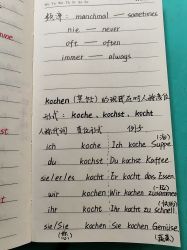 频率: manchmal — sometimes
nie — never
oft — often
immer — always
kochen (烹饪) 的现在时人称变位
形式: koche, kochst, kocht
人称代词 变位形式 例句
ich koche Ich koche Suppe (汤)
du kochst Du kochst Kaffee
sie/er/es kocht Er kocht das Essen
wir kochen Wir kochen zusammen (一起)
ihr kocht Ihr kocht zu schnell (快的)
sie/Sie kochen Sie kochen Gemüse
(您) (蔬菜)